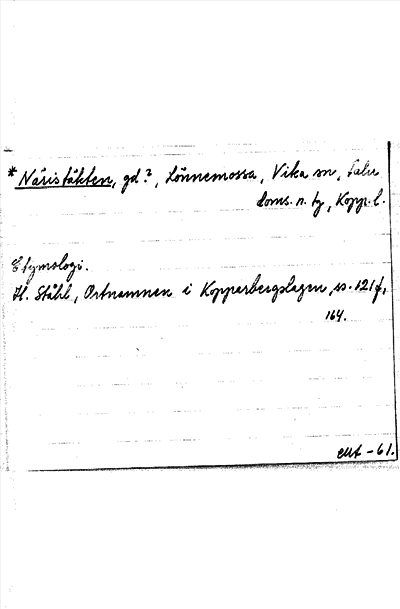 *Näristäkten, gd?, Lönnemossa, Vika sn, Falu
doms. n. tg, Kopp. l.
Etymologi.
H. Ståhl, Ortnamnen i Kopparbergslagen, ss. 121 f,
164.
-61.